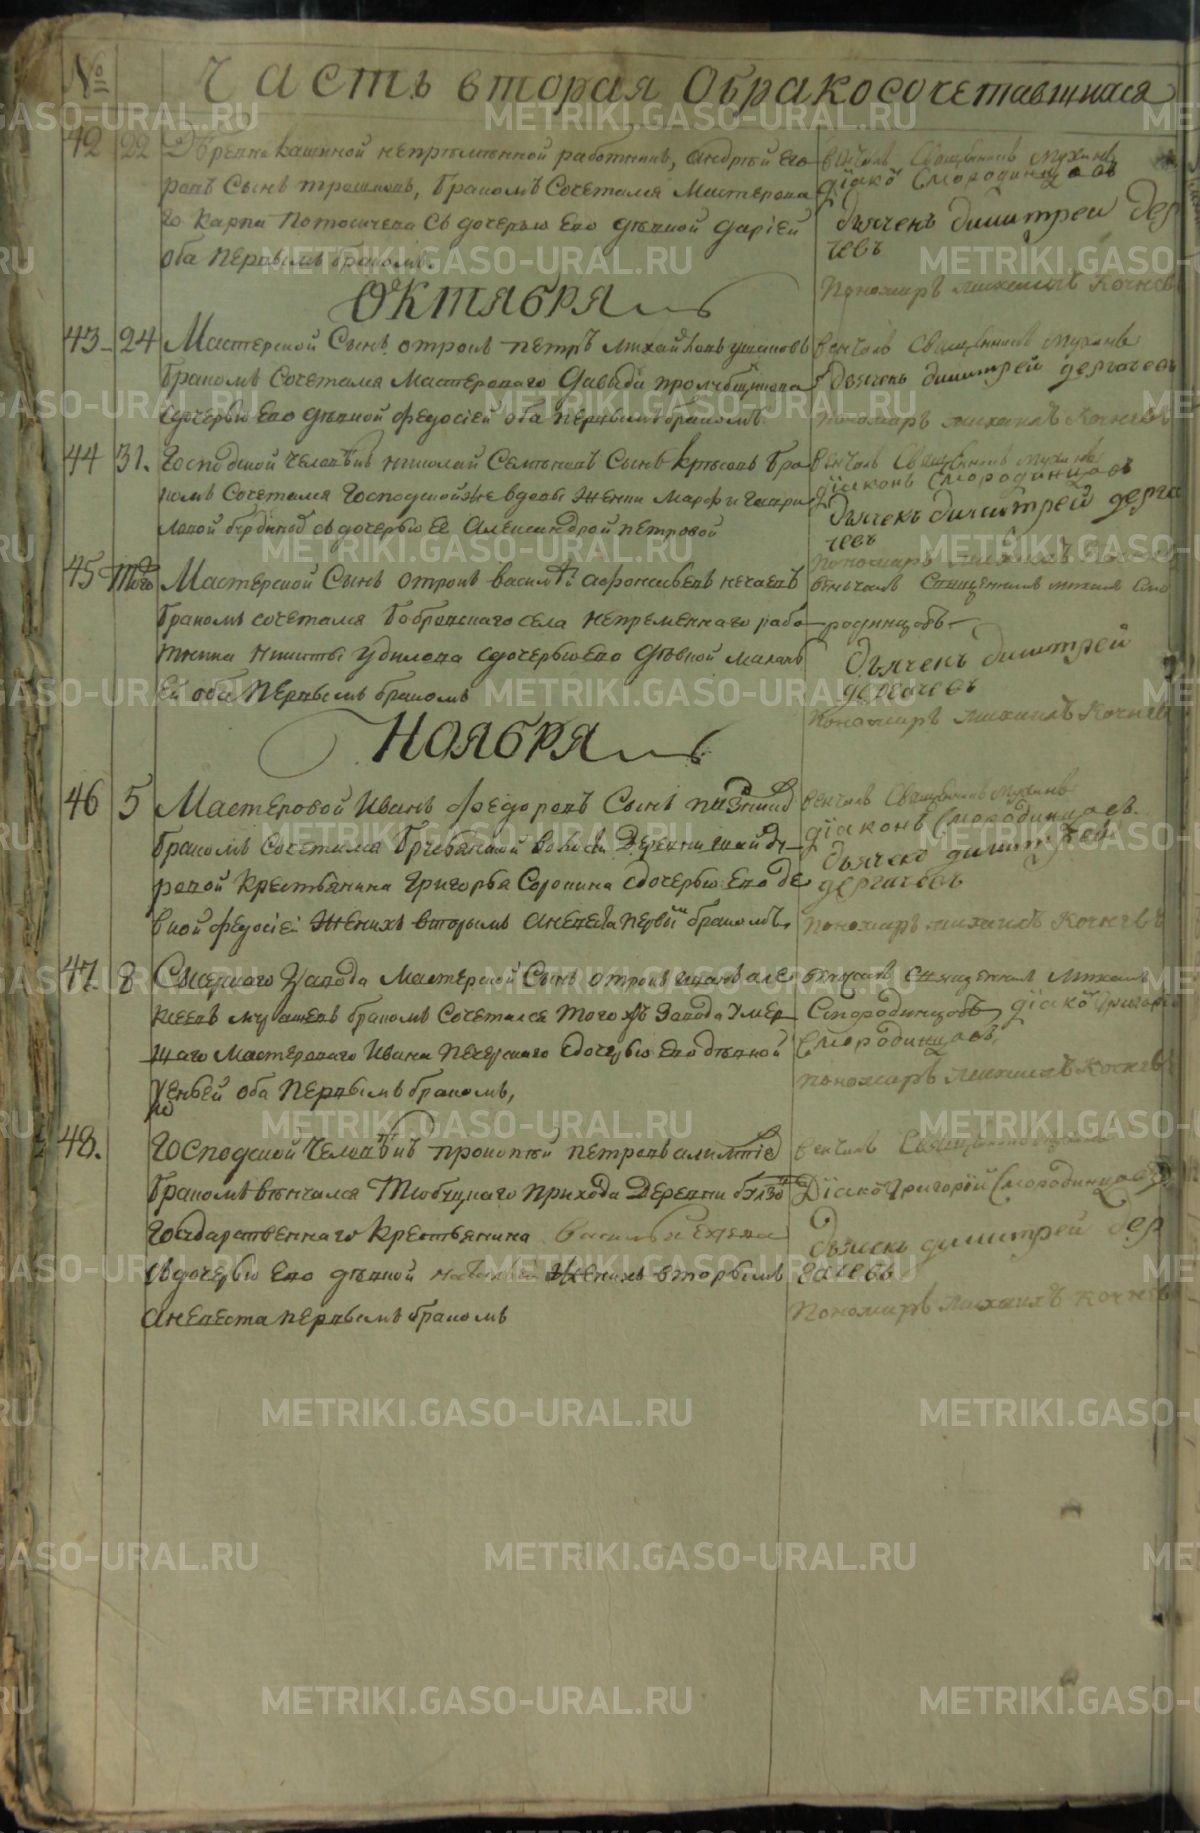 № Часть вторая Обракосочетавшихся
42 22 Деревни Кашиной непременной работникъ, андрей его
ровъ Сынъ трошковъ, бракомъ Сочетался Мастерова
го Карпа Потоскуева съ дочерью Его дѣвкой дарiей
оба первымъ бракомъ.
венчалъ Священникъ Мухинъ
дiако Смородинцовъ
дьячекъ димитрей Дер
чевъ
пономаръ михаилъ Кочнев
Октября
43 24 Мастерской Сынъ отрокъ петръ михайловъ ушаковъ
бракомъ Сочетался Мастероваго Давыда
Сдочерью Его дѣвкой федосiей оба первымъ бракомъ
венчалъ священникъ мухинъ
дьячекъ димитрей дергачевъ
пономаръ михаилъ Кочневъ
44 31. Господской человѣкъ николай Семеновъ Сынъ бра
комъ Сочетался Господскойже вдовы Жонки Марфы Гаври
ловой съ дочерью Ее Александрой петровой
венчалъ Священникъ мухинъ
дiаконъ Смородинцовъ
дьячекъ димитрей дерга
чевъ
пономаръ михаилъ
45 того Мастерской Сынъ отрокъ василѣй афонасьевъ нечаевъ
бракомъ сочетался бобровскаго села непременнаго рабо
тника никиты удилова сдочерью его дѣвкой малань
ей оба первымъ бракомъ
венчалъ Священникъ михаилъ Смо
родинцовъ
дьячекъ димитрей
дергачевъ
пономаръ михаилъ Кочнев
Ноября
46 5 Мастеровой Иванъ федоровъ Сынъ
бракомъ сочетался волости Деревни
ревой крестьянина григорья Сорокина сдочерью Его де
вкой федосiей Женихъ вторымъ аневеста первымъ бракомъ
венчалъ Священникъ мухинъ
дiаконъ Смородинцовъ.
дьячекъ димитрей
дергачевъ
пономаръ михаилъ Кочневъ
47. 8 Сысерцкаго Завода Мастерской Сынъ отрокъ иванъ але
ксеевъ бракомъ Сочетался того жъ Завода Умер
щаго Мастероваго Ивана Печерскаго Сдочерью Его дѣвкой
оба первымъ бракомъ,
венчалъ Священникъ михаилъ
Смородинцовъ, дiако Григорiй
Смородинцовъ,
пономаръ михаилъ Кочнев
48. Господской человѣкъ прокопей петровъ
бракомъ венчался прихода Деревни
Государственнаго Крестьянина василья
съдочерью Его дѣвкой Женихъ вторымъ
аневеста первымъ бракомъ
венчалъ Священникъ
Дiако Григорiй Смородинцовъ
дьячекъ димитрей Дер
гачевъ
пономаръ михаилъ кочнев
METRIKI.GASO-URAL.RU